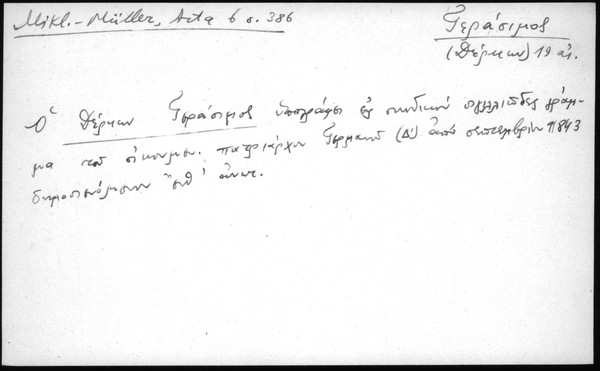 Mikl.-Müller, Acta 6 σ. 386
Γεράσιμος
(Δέρκων) 19 αἰ.
Ὁ Δέρκων Γεράσιμος ὑπογράφει εἰς συνοδικὸν σιγιλλιῶδες γράμ-
μα τοῦ οἰκουμ. πατριάρχου Γερμανοῦ (Δ') ἀπὸ σεπτεμβρίου 1843
δημοσιευόμενον ἔνθ' ἀνωτ.